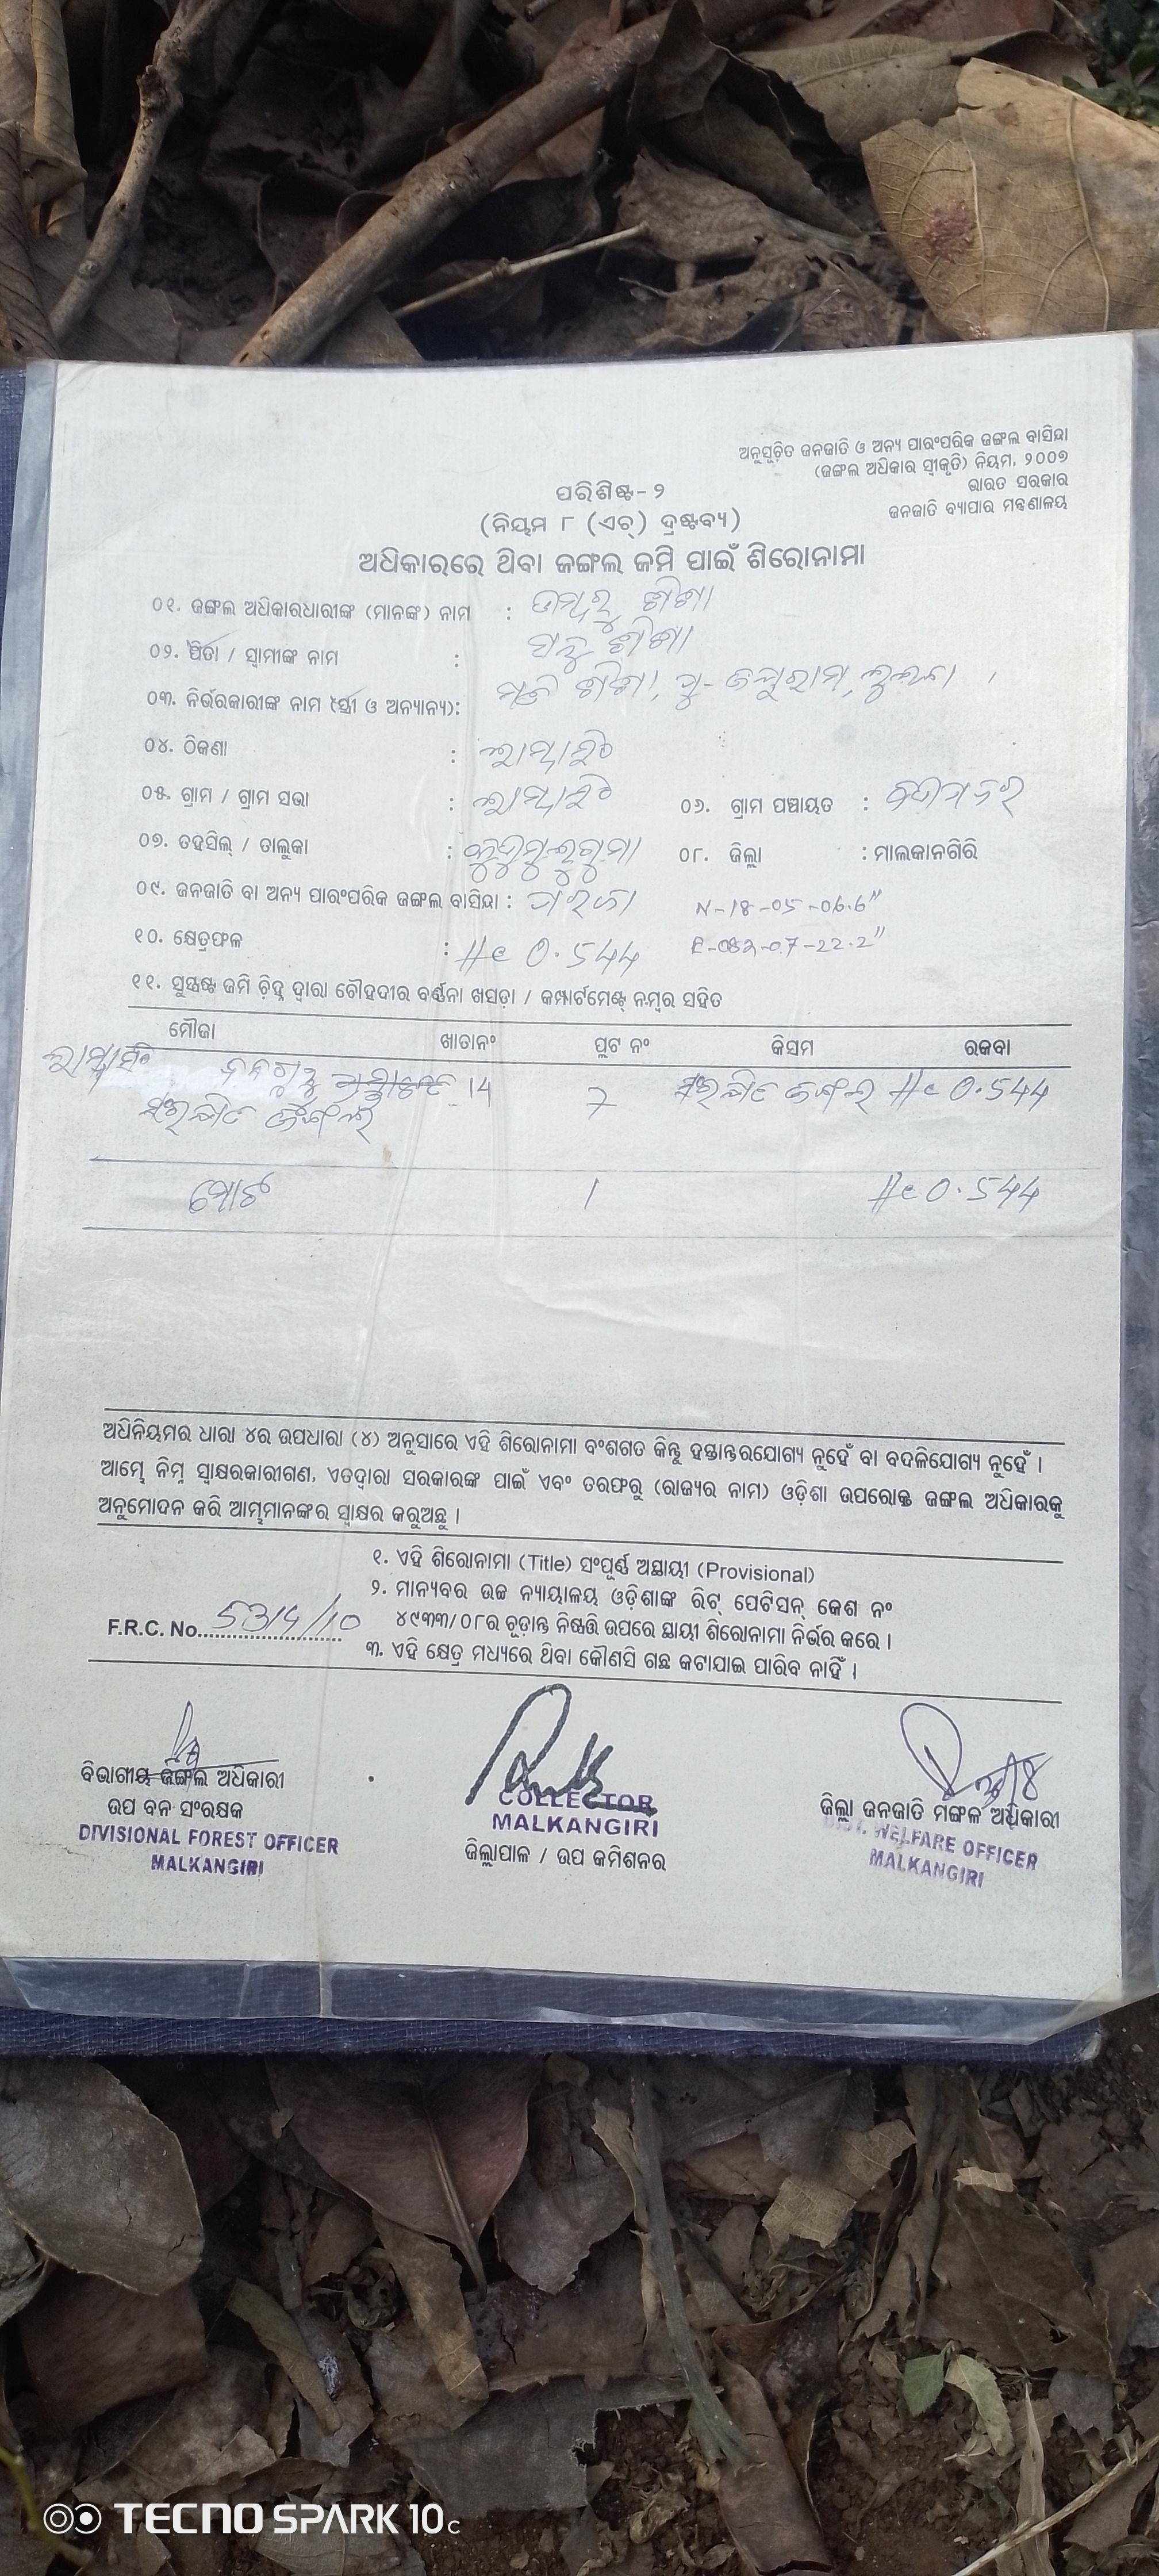 ଅନୁସୂଚିତ ଜନଜାତି ଓ ଅନ୍ୟ ପାରଂପରିକ ଜଙ୍ଗଲ ବାସିନ୍ଦା
(ଜଙ୍ଗଲ ଅଧିକାର ସ୍ୱୀକୃତି) ନିୟମ, ୨୦୦୭
ଭାରତ ସରକାର
ଜନଜାତି ବ୍ୟାପାର ମନ୍ତ୍ରଣାଳୟ
ପରିଶିଷ୍ଟ-୨
(ନିୟମ ୮ (ଏଚ୍) ଦ୍ରଷ୍ଟବ୍ୟ)
ଅଧିକାରରେ ଥିବା ଜଙ୍ଗଲ ଜମି ପାଇଁ ଶିରୋନାମା
୦୧. ଜଙ୍ଗଲ ଅଧିକାରଧାରୀଙ୍କ (ମାନଙ୍କ) ନାମ :
୦୨. ପିତା / ସ୍ୱାମୀଙ୍କ ନାମ :
୦୩. ନିର୍ଭରକାରୀଙ୍କ ନାମ (ସ୍ତ୍ରୀ ଓ ଅନ୍ୟାନ୍ୟ):
୦୪. ଠିକଣା :
୦୫. ଗ୍ରାମ / ଗ୍ରାମ ସଭା : ୦୬. ଗ୍ରାମ ପଞ୍ଚାୟତ :
୦୭. ତହସିଲ୍ / ତାଲୁକା : କୁଡୁମୁଲୁଗୁମା ୦୮. ଜିଲ୍ଲା : ମାଲକାନଗିରି
୦୯. ଜନଜାତି ବା ଅନ୍ୟ ପାରଂପରିକ ଜଙ୍ଗଲ ବାସିନ୍ଦା : N-18-05-06.6"
୧୦. କ୍ଷେତ୍ରଫଳ : Hc 0.544 E-082-07-22.2"
୧୧. ସୁସ୍ପଷ୍ଟ ଜମି ଚିହ୍ନ ଦ୍ୱାରା ଚୌହଦୀର ବର୍ଣ୍ଣନା ଖସଡ଼ା / କମ୍ପାର୍ଟମେଣ୍ଟ୍ ନମ୍ବର ସହିତ
ମୌଜା ଖାତାନଂ ପ୍ଲଟ ନଂ କିସମ ରକବା
14 7 ସଂରକ୍ଷିତ ଜଙ୍ଗଲ Hc 0.544
ସଂରକ୍ଷିତ ଜଙ୍ଗଲ
ମୋଟ 1 Hc 0.544
ଅଧିନିୟମର ଧାରା ୪ର ଉପଧାରା (୪) ଅନୁସାରେ ଏହି ଶିରୋନାମା ବଂଶଗତ କିନ୍ତୁ ହସ୍ତାନ୍ତରଯୋଗ୍ୟ ନୁହେଁ ବା ବଦଳିଯୋଗ୍ୟ ନୁହେଁ ।
ଆମ୍ଭେ ନିମ୍ନ ସ୍ୱାକ୍ଷରକାରୀଗଣ, ଏତଦ୍ୱାରା ସରକାରଙ୍କ ପାଇଁ ଏବଂ ତରଫରୁ (ରାଜ୍ୟର ନାମ) ଓଡ଼ିଶା ଉପରୋକ୍ତ ଜଙ୍ଗଲ ଅଧିକାରକୁ
ଅନୁମୋଦନ କରି ଆମ୍ଭମାନଙ୍କର ସ୍ୱାକ୍ଷର କରୁଅଛୁ ।
୧. ଏହି ଶିରୋନାମା (Title) ସଂପୂର୍ଣ୍ଣ ଅସ୍ଥାୟୀ (Provisional)
୨. ମାନ୍ୟବର ଉଚ୍ଚ ନ୍ୟାୟାଳୟ ଓଡ଼ିଶାଙ୍କ ରିଟ୍ ପେଟିସନ୍ କେଶ ନଂ
୪୯୩୩/୦୮ର ଚୂଡ଼ାନ୍ତ ନିଷ୍ପତ୍ତି ଉପରେ ସ୍ଥାୟୀ ଶିରୋନାମା ନିର୍ଭର କରେ ।
F.R.C. No.
୩. ଏହି କ୍ଷେତ୍ର ମଧ୍ୟରେ ଥିବା କୌଣସି ଗଛ କଟାଯାଇ ପାରିବ ନାହିଁ ।
ବିଭାଗୀୟ ଜଙ୍ଗଲ ଅଧିକାରୀ
ଉପ ବନ ସଂରକ୍ଷକ
DIVISIONAL FOREST OFFICER
MALKANGIRI
COLLECTOR
MALKANGIRI
ଜିଲ୍ଲାପାଳ / ଉପ କମିଶନର
ଜିଲ୍ଲା ଜନଜାତି ମଙ୍ଗଳ ଅଧିକାରୀ
DIST. WELFARE OFFICER
MALKANGIRI
TECNO SPARK 10C